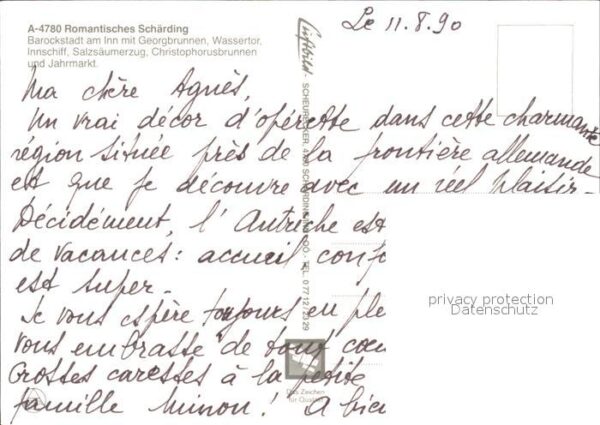 A-4780 Romantisches Schärding
Barockstadt am Inn mit Georgbrunnen, Wassertor,
Innschiff, Salzsäumerzug, Christophorusbrunnen
und Jahrmarkt.
Le 11.8.90
Ma chère Agnès,
Un vrai décor d'opérette dans cette charmante
région située près de la frontière allemande
est que je découvre avec un réel plaisir-
Décidément, l'Autriche est
de vacances: accueil conf
est super-
Je vous espère toujours en ple
vous embrasse de tout cœu
Grosses caresses à la petite
famille Minon! A bien
Luftbild - 
TEL. 0 77 12 / 23 29
privacy protection
Datenschutz
Das Zeichen
für Qualität